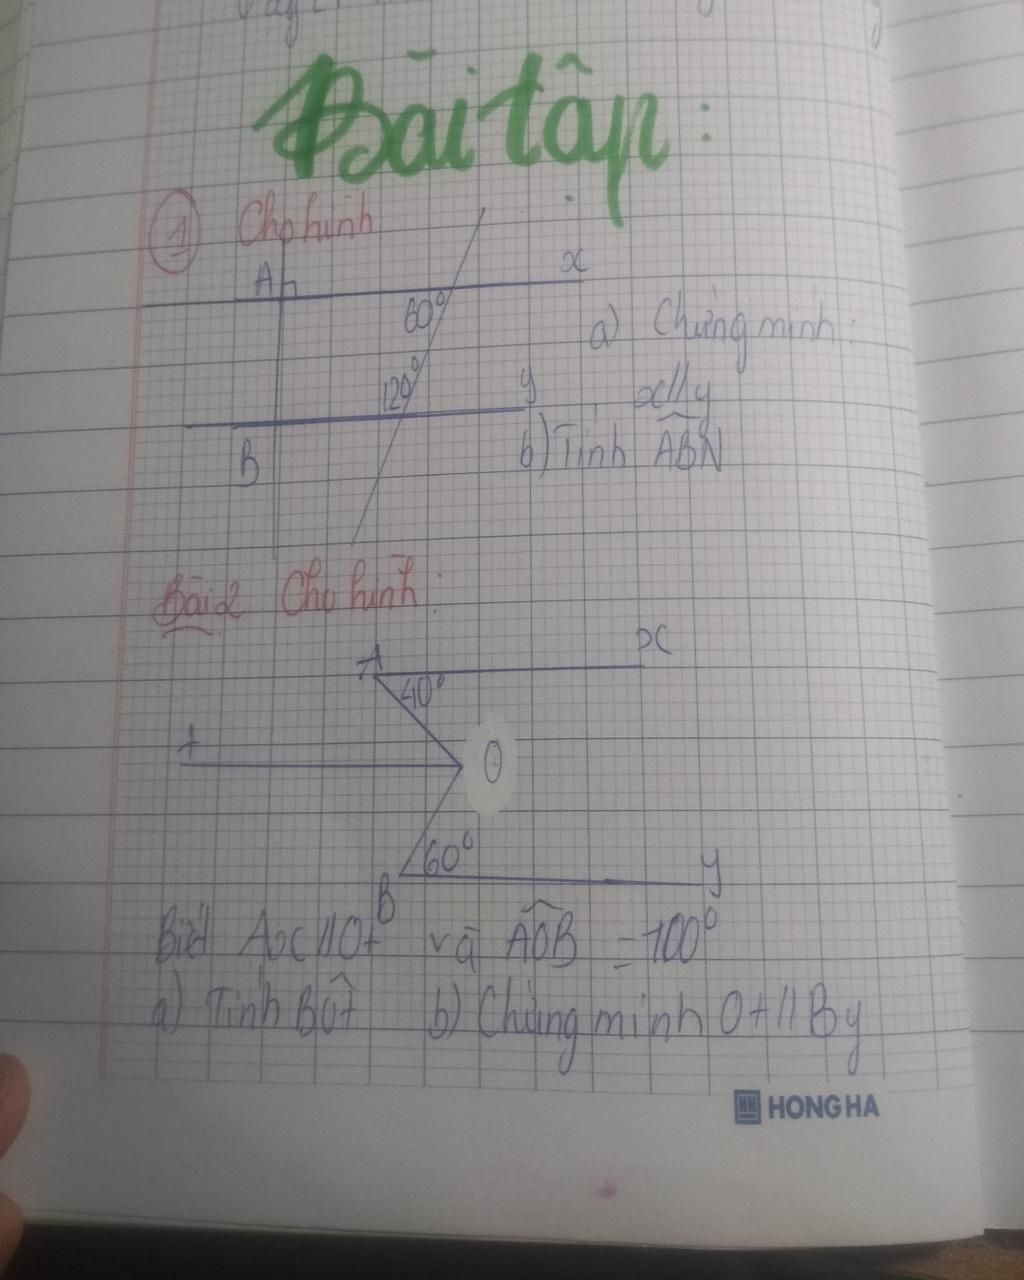 Bài tập:
1 Cho hình
A x
60°
a) Chứng minh:
120° y
x//y
b) Tính ABN
B
Bài 2 Cho hình:
A x
40°
t O
60° y
B
Biết Ax//Ot và AOB = 100°
a) Tính BOt b) Chứng minh Ot//By
HONG HA